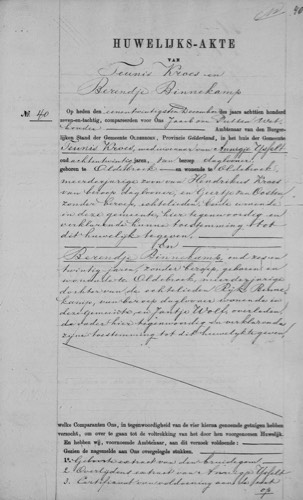 40
HUWELIJKS-AKTE
VAN
Teunis Kroes en
Berendje Binnekamp
No. 40
Op heden den eenentwintigsten December des jaars achttien honderd
zeven-en-tachtig, compareerden voor Ons
Ambtenaar van den Burger-
lijken Stand der Gemeente OLDEBROEK, Provincie Gelderland, in het huis der Gemeente
Teunis Kroes, weduwnaar van
oud achtentwintig jaren, van beroep daglooner,
geboren te Oldebroek en wonende te Oldebroek
meerderjarige zoon van Hendrikus Kroes
van beroep daglooner, en Geertje van Oosten
zonder beroep, echtelieden, beide wonende
in deze gemeente, hier tegenwoordig en
verklarende hunne toestemming tot
dit huwelijk te geven,
en
Berendje Binnekamp, oud zeven
twintig jaren, zonder beroep, geboren en
wonende te Oldebroek, meerderjarige
dochter van de echtelieden Binne-
kamp, van beroep daglooner, wonende in
deze gemeente, en overleden,
de vader hier tegenwoordig en verklarende
zijne toestemming tot dit huwelijk te geven
welke Comparanten Ons, in tegenwoordigheid van de vier hierna genoemde getuigen hebben
verzocht, om over te gaan tot de voltrekking van het door hen voorgenomen Huwelijk.
En hebben wij, voornoemde Ambtenaar, aan dit verzoek voldaande:
Gezien de nagemelde aan Ons overgelegde stukken.
1. Geboorte extract van den bruidegom
2. Overlijdens extract van
3. Certificaat van voldoening aan de